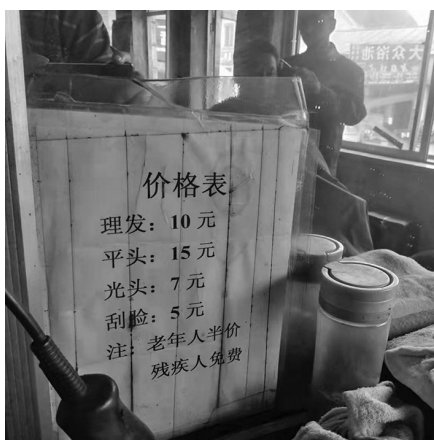 大众浴池
价格表
理发：10 元
平头：15 元
光头：7 元
刮脸：5 元
注：老年人半价
残疾人免费